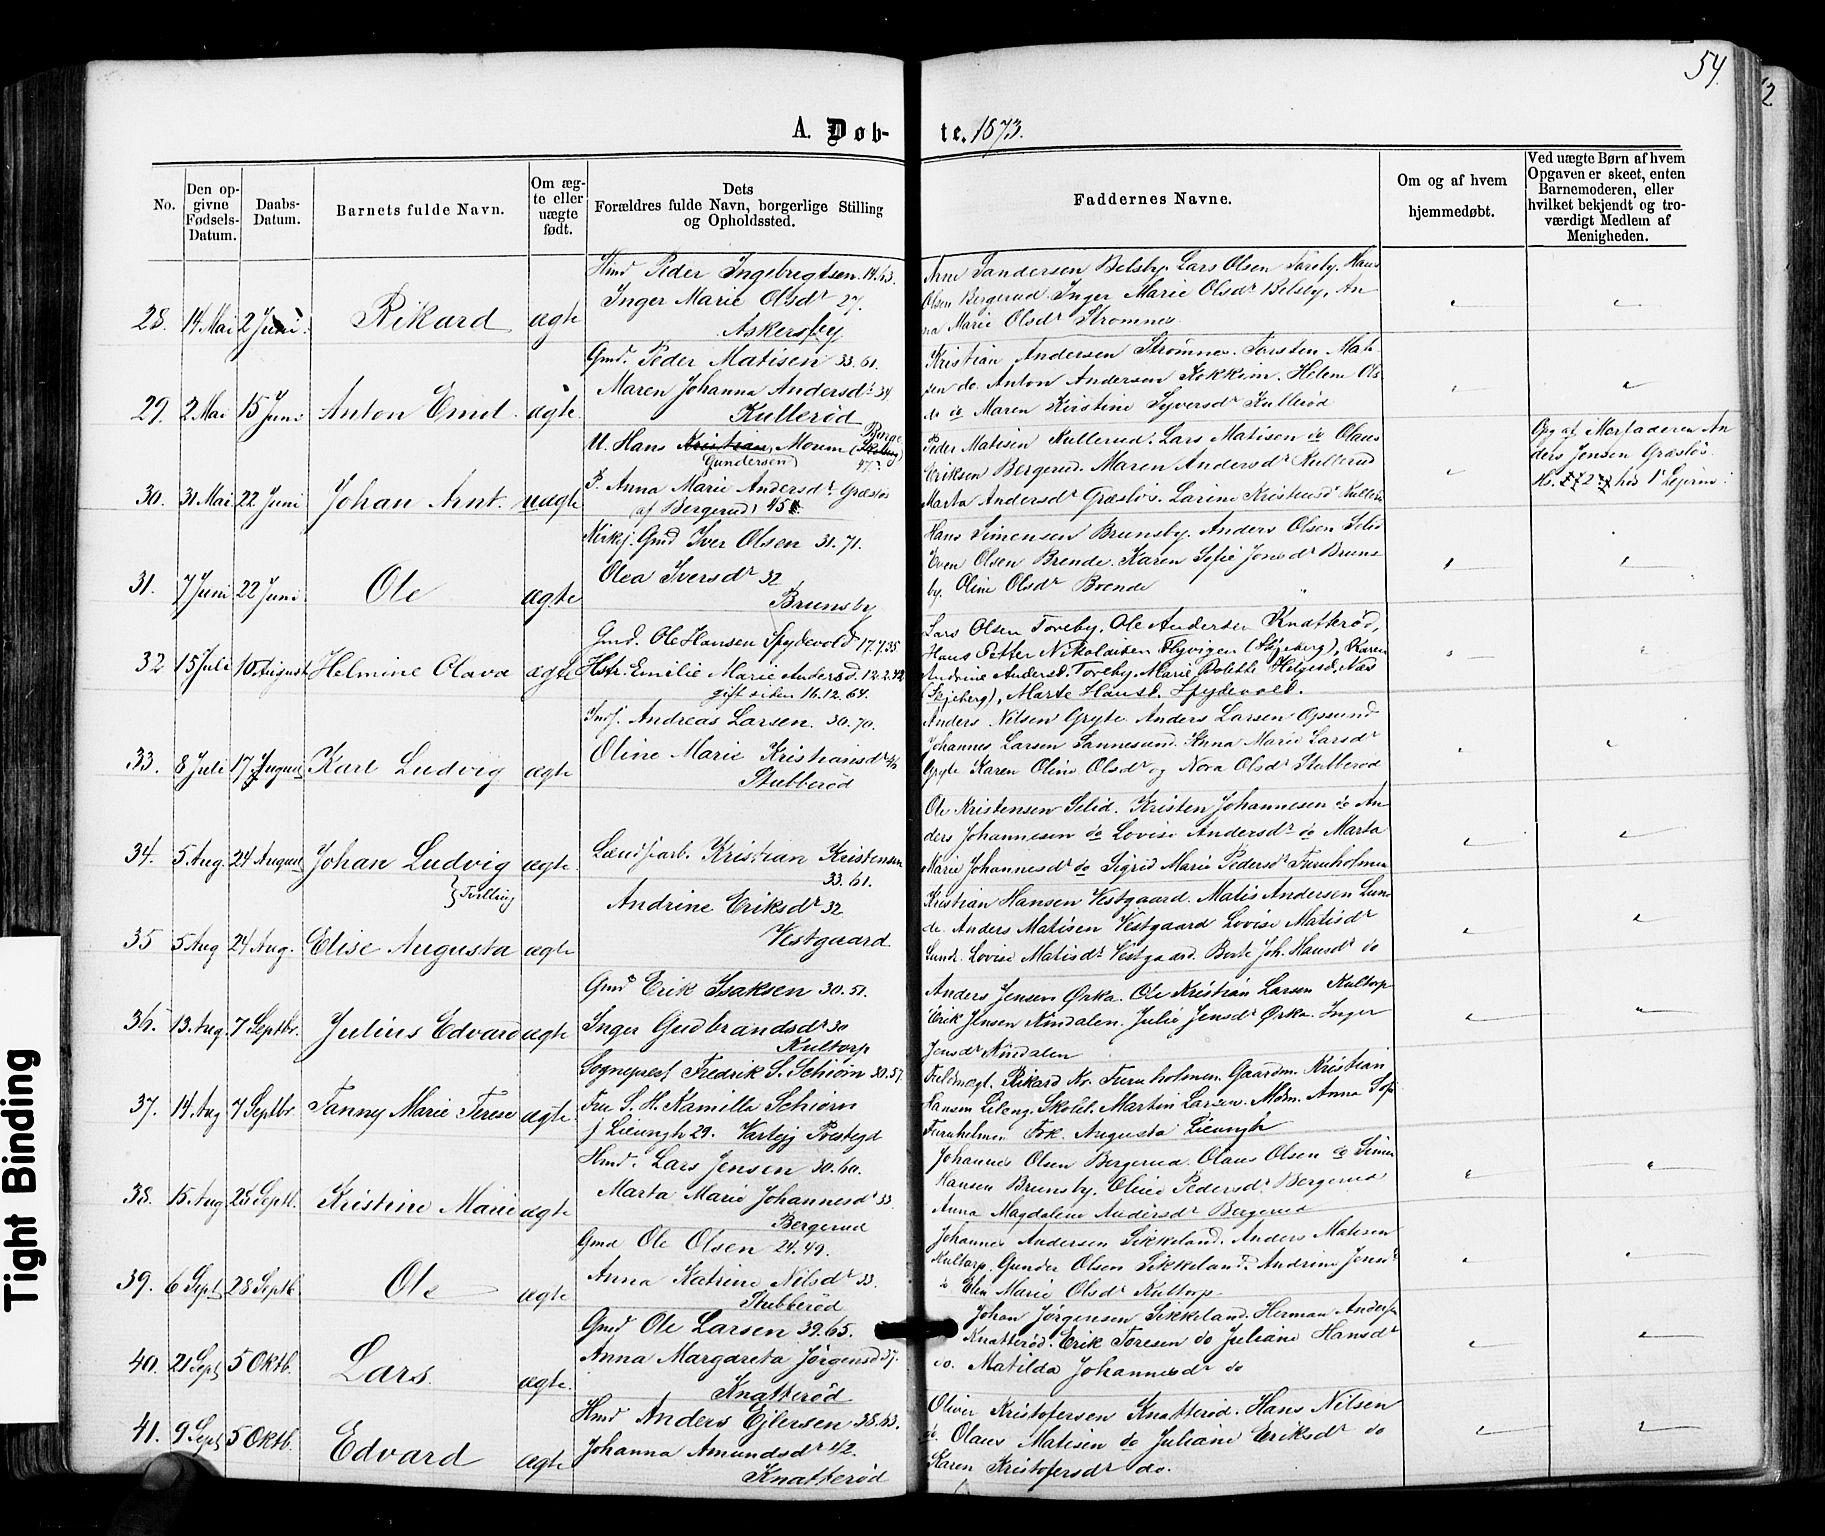 54.
2
A. Døb- te. 1873.
No.
Den op-
givne
Fødsels-
Datum.
Daabs-
Datum.
Barnets fulde Navn.
Om æg-
te eller
uægte
født.
Dets
Forældres fulde Navn, borgerlige Stilling
og Opholdssted.
Faddernes Navne.
Om og af hvem
hjemmedøbt.
Ved uægte Børn af hvem
Opgaven er skeet, enten
Barnemoderen, eller
hvilket bekjendt og tro-
værdigt Medlem af
Menigheden.
28. 14 Mai 2 Juni. Rikard ægte
Hmd Peder Ingebregtsen 14.63.
Inger Marie Olsdr 27.
Askersby
Arne Sandersen Belsby. Lars Olsen Toreby. Hans
Olsen Bergerud. Inger Marie Olsdr Belsby, An
na Marie Olsdr Strømnes
29. 2 Mai 15 Juni Anton Emil. ægte.
Gmd. Peder Matisen 33.61.
Maren Johanna Andersdr 34
Kullerød
Kristian Andersen Strømnes. Torsten Mati
sen do. Anton Andersen Kokkim. Helene Ols
dr do Maren Kirstine Syversdr Kullerød
30. 31 Mai 22 Juni Johan Arnt. uægte
U. Hans Kristian Moum
Gundersen
47.
P. Anna Marie Andersdr Græsløs
(af Bergerud) 45
Peder Matisen Kullerud. Lars Matisen do Olaus
Eriksen Bergerud. Maren Andersdr Kullerud
Marta Andersdr Græsløs. Larine Kristensdr Kullerø
Opg af Morfaderen An
ders Jensen Græsløs.
31. 7 Juni 22 Juni Ole ægte
Kirkej. Gmd Iver Olsen 31.71.
Olea Iversdr 32
Brunsby
Hans Simensen Brunsby. Anders Olsen Selid
Even Olsen Brende. Karen Sofie Jonsdr Bruns
by. Oline Olsdr Brende
32 15 Juli 10 August Helmine Olava ægte
Gmd. Ole Hansen Spydevold 17.7.35
Hstr. Emilie Marie Andersd. 12.2.42
gift siden 16.12.64.
Lars Olsen Toreby. Ole Andersen Knatterød,
Hans Petter Nikolaisen Flyvigen (Skjeberg), Karen
Andrine Andersd. Toreby, Marie Bolette Helgesd. Næs
(Skjeberg), Marte Hansd. Spydevold.
33. 8 Juli 17 August Karl Ludvig ægte
Indf. Andreas Larsen. 30.70.
Oline Marie Kristiansdr 46
Stubberød
Anders Nilsen Gryte. Anders Larsen Opsund
Johannes Larsen Sannesund. Anna Marie Larsdr
Gryte Karen Oline Olsdr og Nora Olsdr Stubberød
34. 5 Aug. 24 August Johan Ludvig ægte.
Tvilling
Landfarb. Kristian Kristensen
33.61.
Andrine Eriksdr 32
Vestgaard.
Ole Kristensen Selid. Kristen Johannesen do An
ders Johannesen do Lovise Andersdr do Marta
Marie Johannesdr do Sigrid Marie Pedersdr Furuholmen
35 5 Aug 24 Aug. Elise Augusta ægte
Kristian Hansen Vestgaard. Matis Andersen Lun
de. Anders Matisen Vestgaard Lovise Matisdr
Lunde. Lovise Matisdr Vestgaard. Berte Joh. Hansdr do
36. 13 Aug. 7 Septbr. Julius Edvard ægte
Gmd Erik Isaksen 30.51.
Inger Gudbrandsdr 30
Kultorp
Anders Jensen Ørka. Ole Kristian Larsen Kultorp
Erik Jensen Nindalen. Julie Jensdr Ørka. Inger
Jensdr Nindalen
37. 14 Aug 7 Septbr Fanny Marie Terese ægte.
Sogneprest Fredrik S. Schiørn 30.57.
Fru S. H. Kamilla Schiørn
f Lieungh 29. Varteig Prestegd
Fuldmægt. Rikard Kr. Furuholmen. Gaardm. Kristian
Hansen Leleng. Skolel. Martin Larsen. Mdm. Anna Sof.
Furuholmen Frk. Augusta Lieungh
38. 15 Aug 28 Septb. Kristine Marie ægte
Hmd. Lars Jensen 30.60.
Marta Marie Johannesdr 33.
Bergerud
Johannes Olsen Bergerud. Olaus Olsen do Simen
Hansen Brunsby. Oline Pedersdr Bergerud
Anna Magdalene Andersdr Bergerud
39. 6 Sept 28 Septb. Ole ægte
Gmd Ole Olsen 24.49.
Anna Katrine Nilsdr 33.
Stubberød
Johannes Andersen Sikkeland. Anders Matisen
Kultorp. Gunder Olsen Sikkeland. Andrine Jensdr
do Elen Marie Olsdr Kultorp.
40. 21 Sept 5 Oktb. Lars. ægte.
Gmd Ole Larsen 39.65.
Anna Margareta Jørgensd 37.
Knatterød
Johan Jørgensen Sikkeland. Herman Anders
Knatterød. Erik Toresen do Juliane Hansdr
do. Matilda Johannesdr do
41. 9 Sept 5 Oktb. Edvard ægte
Hmd Anders Ejlersen 38.63.
Johanna Amundsdr 42
Knatterød
Oliver Kristofersen Knatterød. Hans Nilsen
do. Olaus Matisen do Juliane Eriksdr do
Karen Kristofersdr do.
Tight Binding